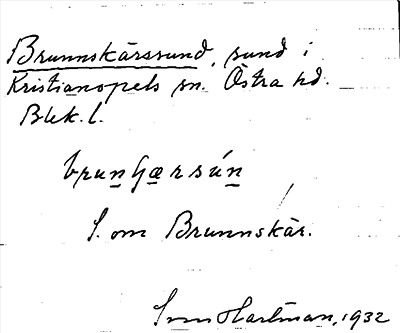 Brunnskärssund, sund i
Kristianopels sn. Östra hd.
Blek. l.
S. om Brunnskär.
Sven Hartman, 1932